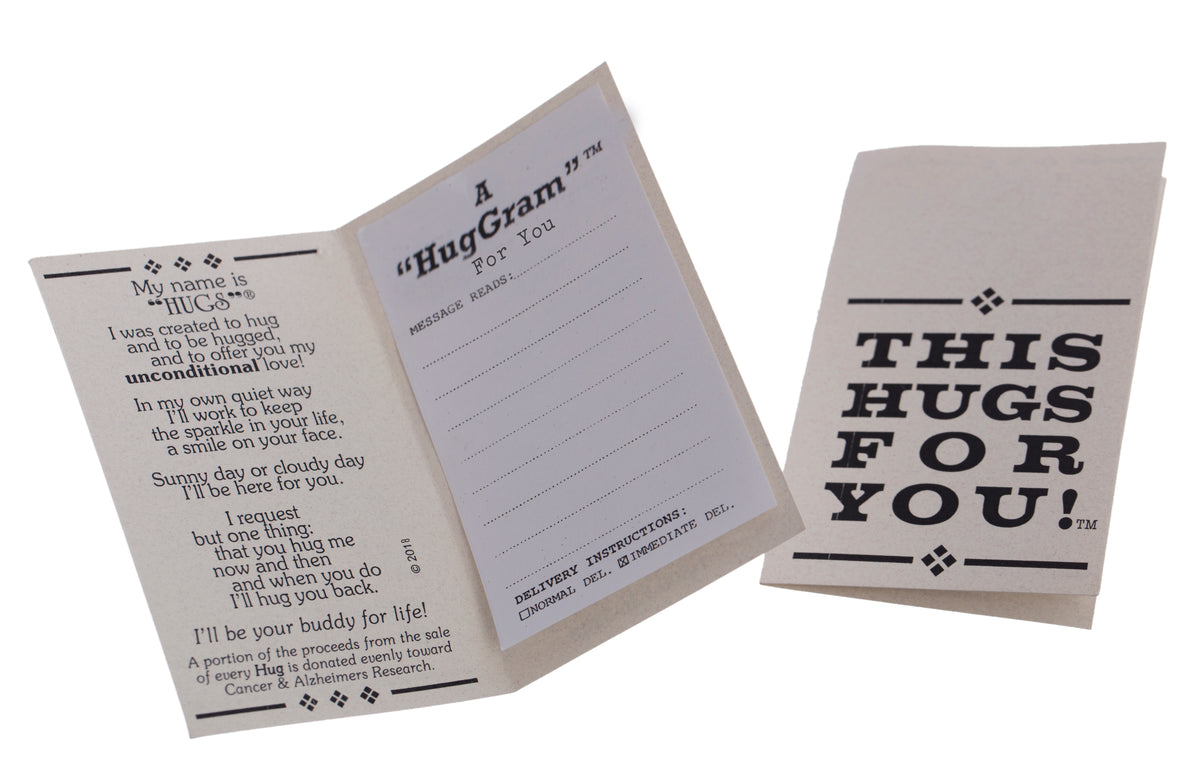 My name is
“HUGS”®
I was created to hug
and to be hugged,
and to offer you my
unconditional love!
In my own quiet way
I'll work to keep
the sparkle in your life,
a smile on your face.
Sunny day or cloudy day
I'll be here for you.
I request
but one thing:
that you hug me
now and then
and when you do
I'll hug you back.
© 2018
I'll be your buddy for life!
A portion of the proceeds from the sale
of every Hug is donated evenly toward
Cancer & Alzheimers Research.
A
“HugGram”™
For You
MESSAGE READS:
DELIVERY INSTRUCTIONS:
☐NORMAL DEL. ☒IMMEDIATE DEL.
THIS
HUGS
FOR
YOU!™